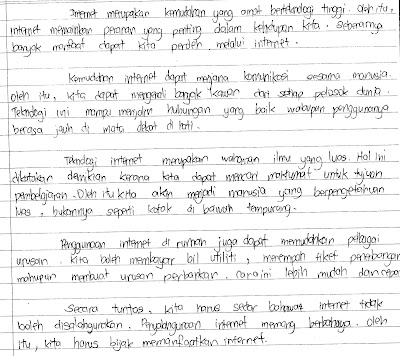 Internet merupakan kemudahan yang amat berteknologi tinggi. Oleh itu,
internet memainkan peranan yang penting dalam kehidupan kita. Sebenarnya
banyak manfaat dapat kita peroleh melalui internet.
Kemudahan internet dapat menjana komunikasi sesama manusia.
Oleh itu, kita dapat mengenali banyak kawan dari setiap pelosok dunia.
Teknologi ini mampu menjalin hubungan yang baik walaupun penggunanya
berasa jauh di mata dekat di hati.
Teknologi internet merupakan wahana ilmu yang luas. Hal ini
dikatakan demikian kerana kita dapat mencari maklumat untuk tujuan
pembelajaran. Oleh itu kita akan menjadi manusia yang berpengetahuan
luas, bukannya seperti katak di bawah tempurung.
Penggunaan internet di rumah juga dapat memudahkan pelbagai
urusan. Kita boleh membayar bil utiliti, menempah tiket penerbangan
mahupun membuat urusan perbankan. Cara ini lebih mudah dan cepat
Secara tuntas, kita harus sedar bahawa internet tidak
boleh disalahgunakan. Penyalahgunaan internet memang berbahaya. Oleh
itu, kita harus bijak memanfaatkan internet.